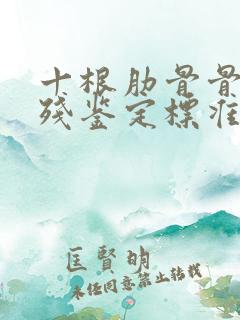 十根肋骨骨
残鉴定標准
匡賢明
未经同意禁止转载